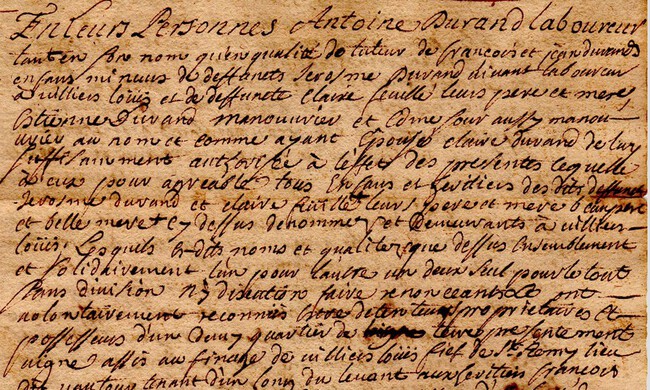 En leurs Personnes Antoine Durand laboureur
tant en son nom qu'en qualité de tuteur de francois et jean durands
enfans mineurs de deffunets Jerosme Durand vivant laboureur
a villiers loüis et de deffuncte claire feuille leurs pere et mere
Estienne Durand manouvrier et Edme sour aussy manou
vrier au nom et comme ayant Epousé claire durand de luy
suffisamment authorisée à l'effet des presentes lequelle
à eux pour agreable tous Enfans et heritiers des dits deffuncts
Jerosme durand et claire leurs pere et mere beaupere
et belle mere Cy dessus denommez et Demeurants à villiers
loüis. Lesquels Es dits noms et qualitez que dessus Ensemblement
et solidairement l'un pour l'autre un deux seul pour le tout
sans division ny discution faire renonceants Ce ont
volontairement reconnus Estre detenteurs proprietaires et
possesseurs d'un demy quartier de terre presentement
vigne assis au finage de villiers loüis fief de St. Remy lieu
dit tenant d'un long du levant aux heritiers francois